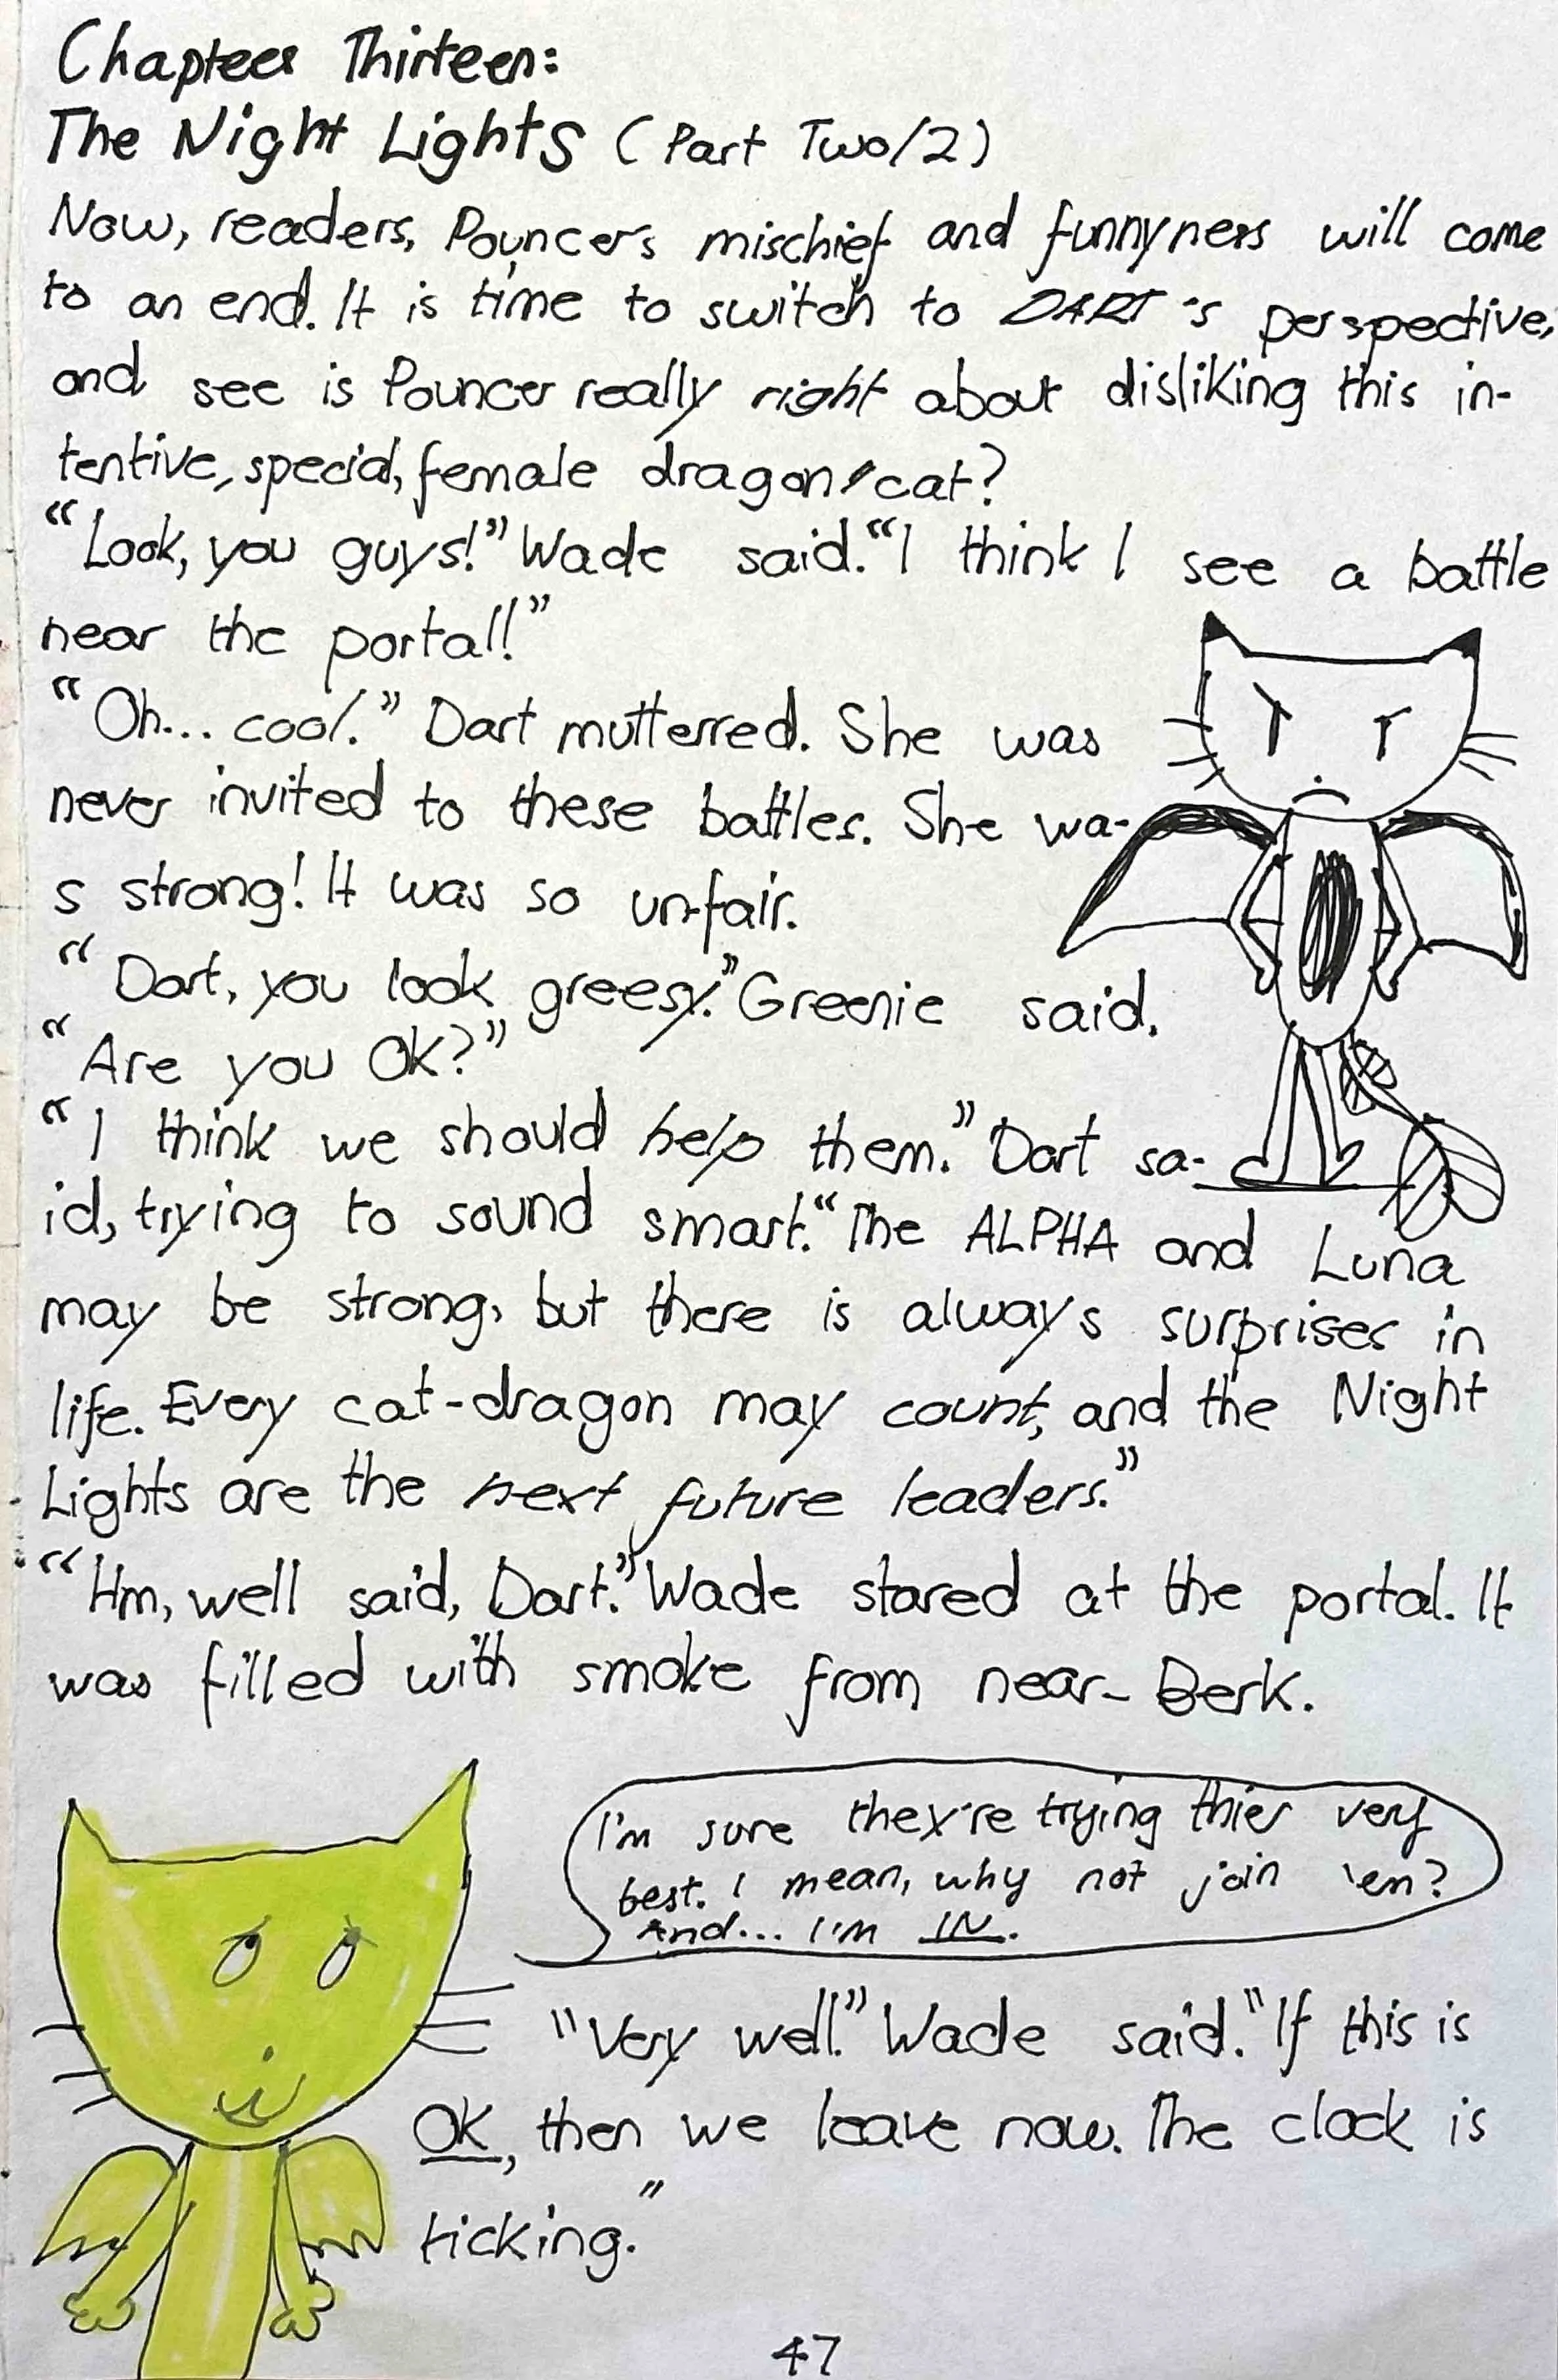 Chapteer Thirteen:
The Night Lights (Part Two/2)
Now, readers, Pouncer's mischief and funnyness will come
to an end. It is time to switch to DART's perspective,
and see is Pouncer really right about disliking this in-
tentive, special, female dragon/cat?
“Look, you guys!” Wade said. “I think I see a battle
near the portal!”
“Oh... cool.” Dart mutterred. She was
never invited to these battles. She wa-
s strong! It was so unfair.
“Dart, you look greesy.” Greenie said.
“Are you OK?”
“I think we should help them.” Dart sa-
id, trying to sound smart. “The ALPHA and Luna
may be strong, but there is always surprises in
life. Every cat-dragon may count, and the Night
Lights are the next future leaders.”
“Hm, well said, Dart.” Wade stared at the portal. It
was filled with smoke from near-Berk.
I'm sure they're trying thier very
best. I mean, why not join 'em?
And... I'm IN.
“Very well.” Wade said. “If this is
OK, then we leave now. The clock is
ticking.”
47